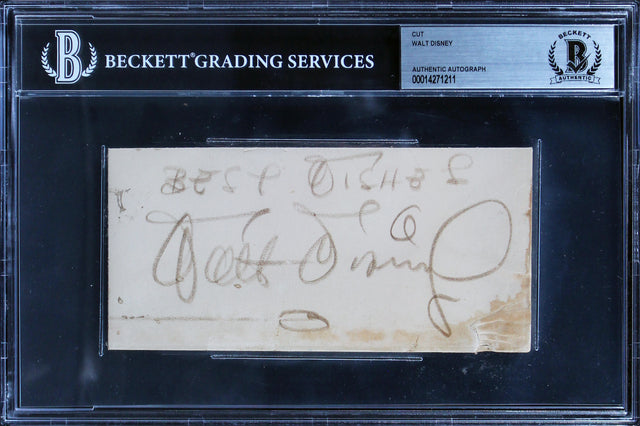 B
BECKETT® GRADING SERVICES
CUT
WALT DISNEY
AUTHENTIC AUTOGRAPH
00014271211
BECKETT
B
AUTHENTIC
BEST WISHES
Walt Disney